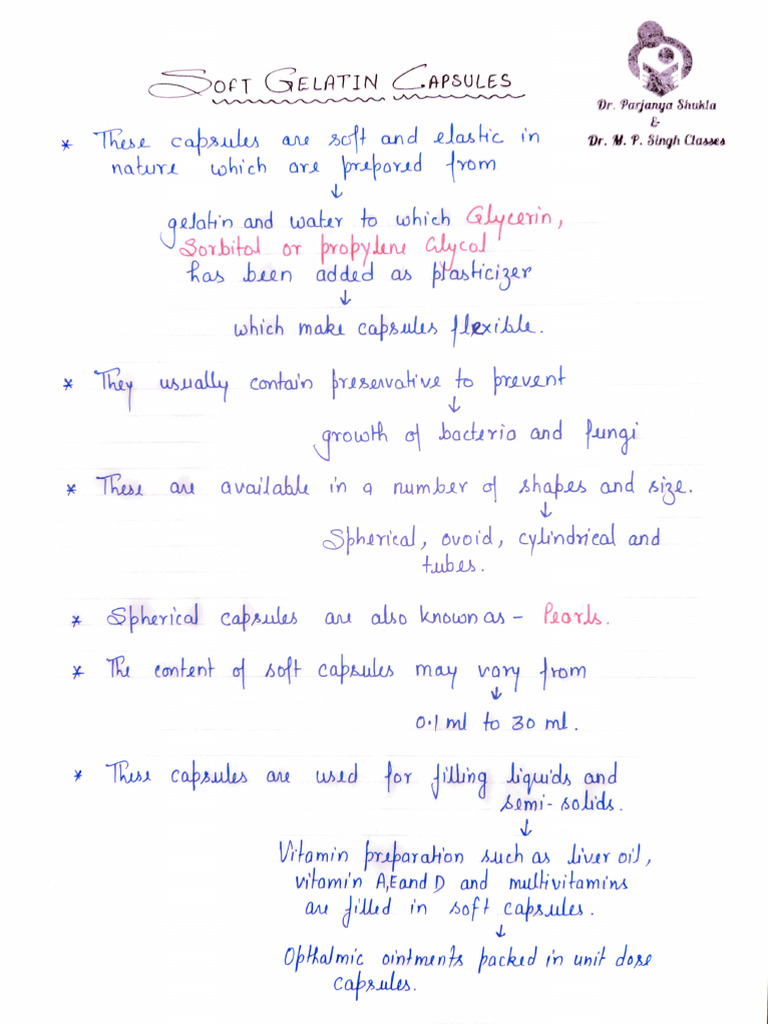 SOFT GELATIN CAPSULES
Dr. Parjanya Shukla
&
Dr. M. P. Singh Classes
* These capsules are soft and elastic in
nature which are prepared from
↓
gelatin and water to which Glycerin,
Sorbitol or propylene Glycol
has been added as plasticizer
↓
which make capsules flexible.
* They usually contain preservative to prevent
↓
growth of bacteria and fungi
* These are available in a number of shapes and size.
↓
Spherical, ovoid, cylindrical and
tubes.
* Spherical capsules are also known as - Pearls.
* The content of soft capsules may vary from
↓
0.1 ml to 30 ml.
* These capsules are used for filling liquids and
semi-solids.
↓
Vitamin preparation such as liver oil,
vitamin A,E and D and multivitamins
are filled in soft capsules.
↓
Opthalmic ointments packed in unit dose
capsules.